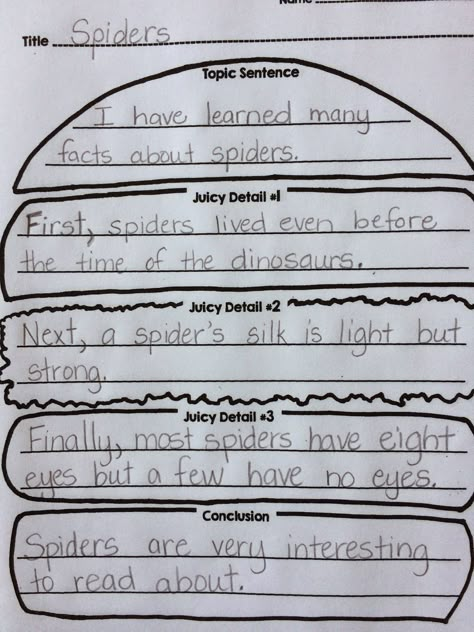 Name
Title Spiders
Topic Sentence
I have learned many
facts about spiders.
Juicy Detail #1
First, spiders lived even before
the time of the dinosaurs.
Juicy Detail #2
Next, a spider's silk is light but
strong.
Juicy Detail #3
Finally, most spiders have eight
eyes but a few have no eyes.
Conclusion
Spiders are very interesting
to read about.